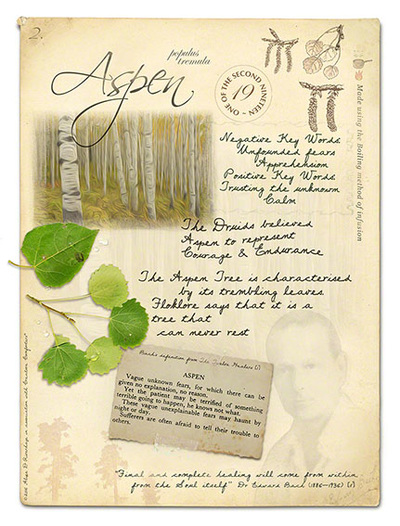 2.
populus
tremula
Aspen
ONE OF THE SECOND NINETEEN
19
Made using the Boiling method of infusion
Negative Key Words
Unfounded fears
Apprehension
Positive Key Words
Trusting the unknown
Calm
The Druids believed
Aspen to represent
Courage & Endurance
The Aspen Tree is characterised
by its trembling leaves
Floklore says that it is a
tree that
can never rest
Bach's definition from The Twelve Healers
ASPEN
Vague unknown fears, for which there can be
given no explanation, no reason.
Yet the patient may be terrified of something
terrible going to happen, he knows not what.
These vague unexplainable fears may haunt by
night or day.
Sufferers are often afraid to tell their trouble to
others.
"Final and complete healing will come from within
from the Soul itself" Dr Edward Bach (1886-1936)